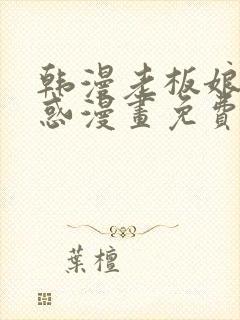 韩漫老板娘
惑漫畫免費
葉檀